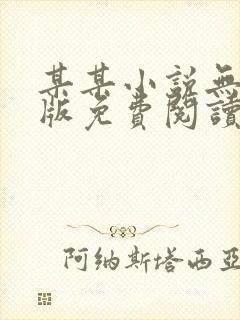 某某小说無
版免費閱讀
阿纳斯塔西亚